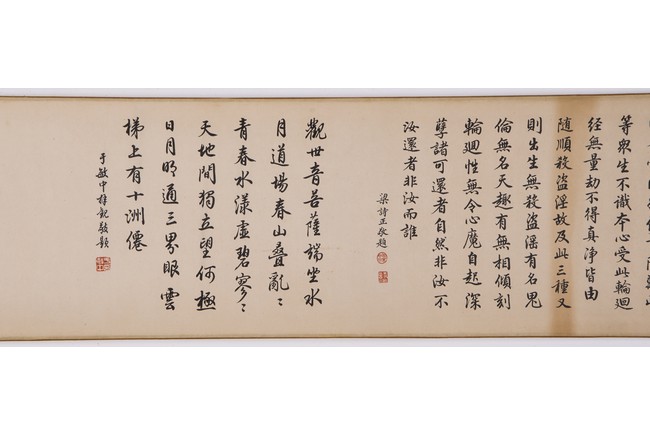 等眾生不識本心受此輪迴
經無量劫不得真淨皆由
隨順殺盜淫故及此三種又
則出生無殺盜淫有名鬼
倫無名天趣有無相傾刻
輪迴性無令心魔自起深
孽諸可還者自然非汝不
汝還者非汝而誰
梁詩正敬題
觀世音菩薩端坐水
月道場春山疊亂〻
青春水漾虛碧寥〻
天地間獨立望何極
日月明通三界眼雲
梯上有十洲僊
于敏中拜觀敬題